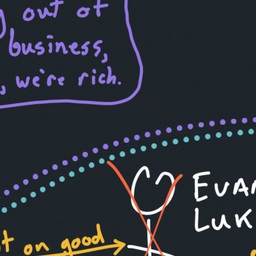 out of
business,
, we're rich.
EVAN
LUK
t on good